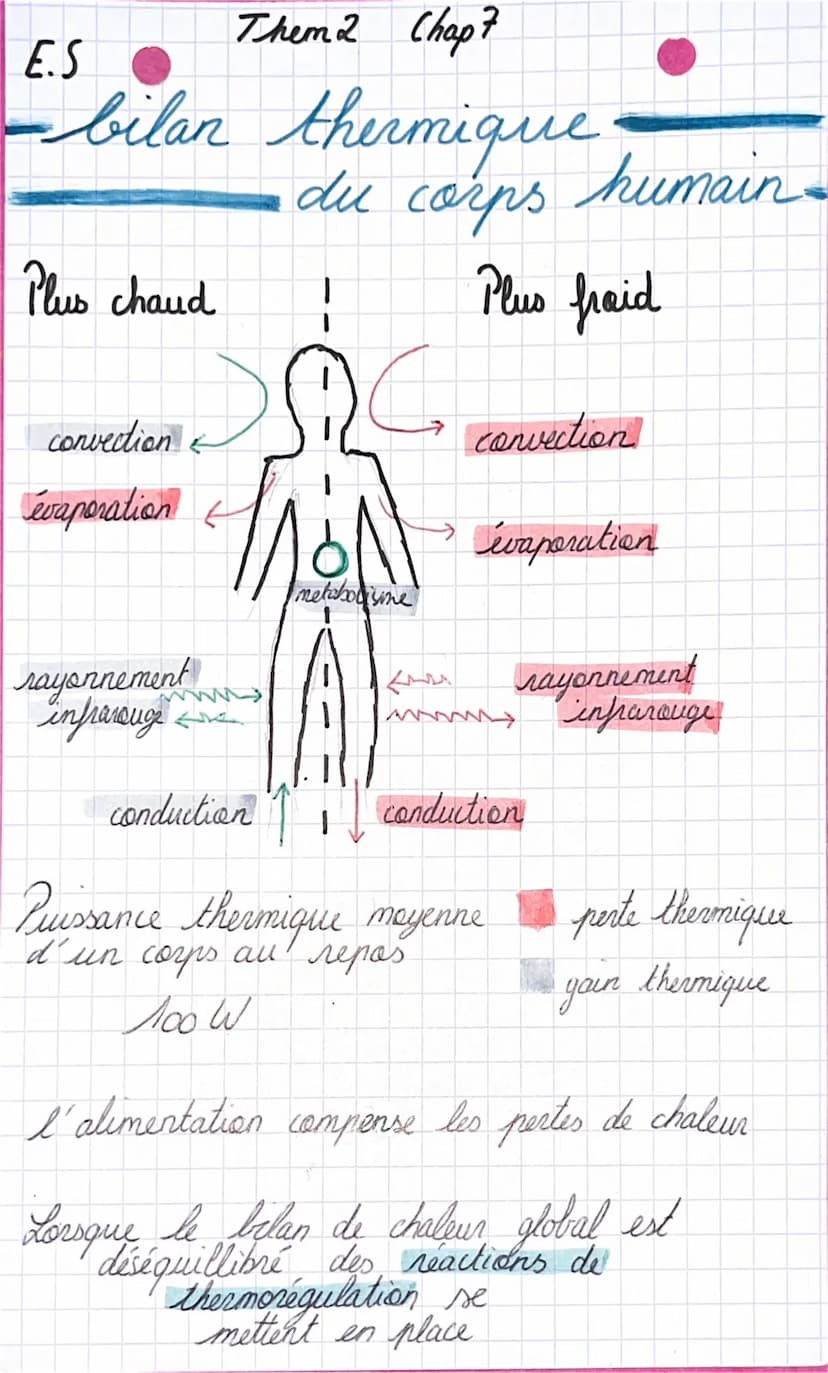 Them 2 Chap 7
E.S
bilan thermique
du corps humain
Plus chaud
Plus froid
convection
convection
évaporation
évaporation
metabolisme
rayonnement
infrarouge
rayonnement
infrarouge
conduction
conduction
Puissance thermique moyenne
d'un corps au repos
100 W
perte thermique
gain thermique
l'alimentation compense les pertes de chaleur
Lorsque le bilan de chaleur global est
déséquillibré des réactions de
thermorégulation se
mettent en place